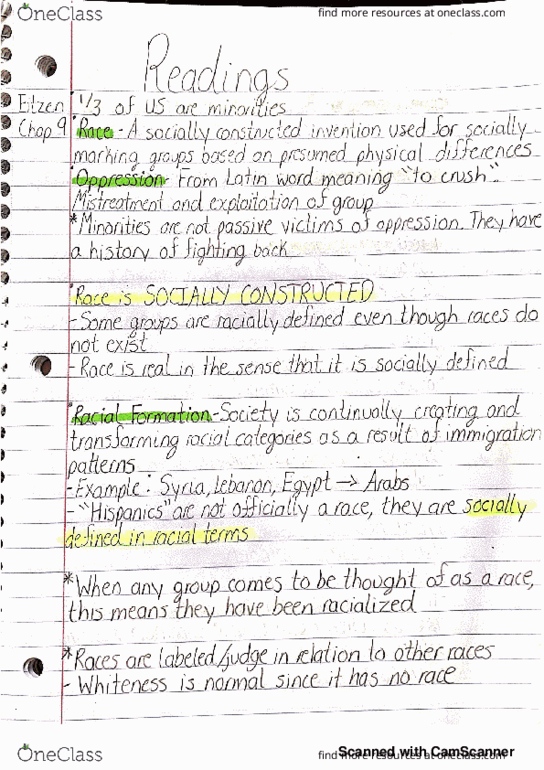 OneClass
find more resources at oneclass.com
Readings
Eitzen
Chap 9
1/3 of US are minorities
Race - A socially constructed invention used for socially
marking groups based on presumed physical differences
Oppression - From Latin word meaning "to crush".
Mistreatment and exploitation of group
*Minorities are not passive victims of oppression. They have
a history of fighting back
Race is SOCIALLY CONSTRUCTED
-Some groups are racially defined even though races do
not exist
-Race is real in the sense that it is socially defined
Racial Formation-Society is continually creating and
transforming racial categories as a result of immigration
patterns
-Example: Syria, Lebanon, Egypt → Arabs
-"Hispanics" are not officially a race, they are socially
defined in racial terms
*When any group comes to be thought of as a race,
this means they have been racialized
*Races are labeled/judge in relation to other races
- Whiteness is normal since it has no race
OneClass
find more resources at oneclass.com
Scanned with CamScanner